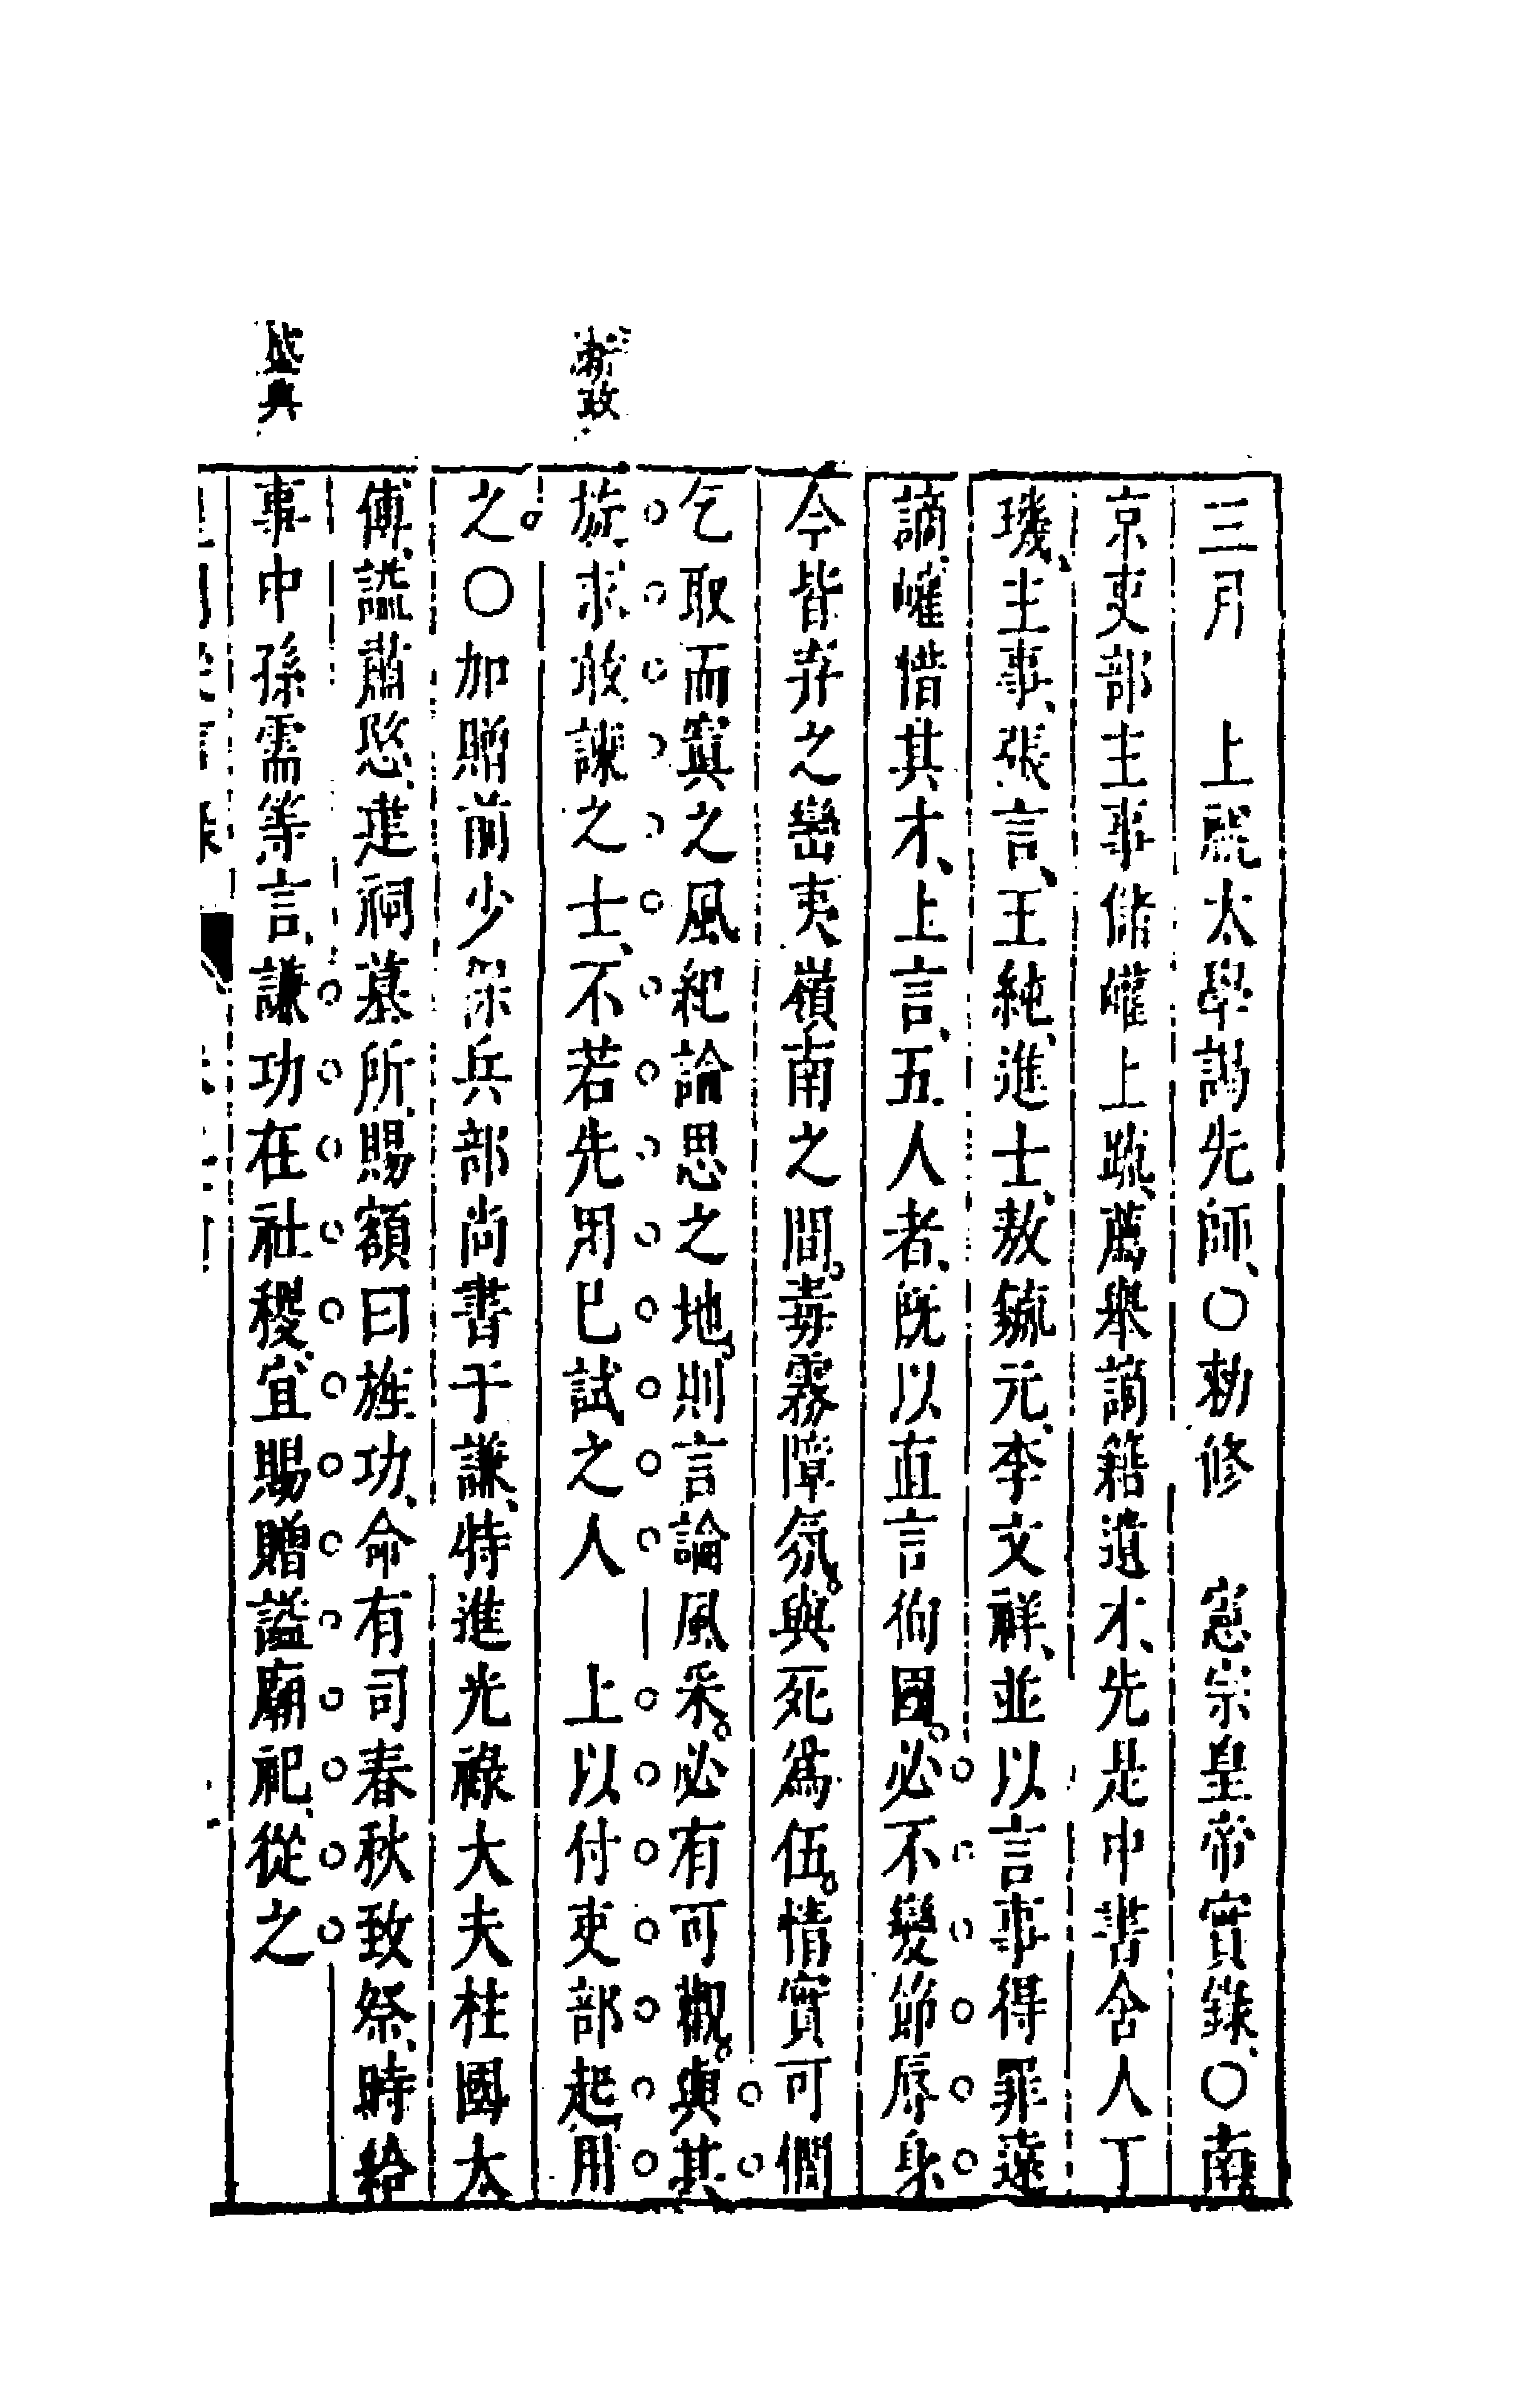 三月　上視太學謁先師、○勅修　憲宗皇帝實錄、○南
京吏部主事儲巏上疏、薦舉謫籍遺才、先是中書舍人丁
璣、主事、張言、王純、進士、敖毓元、李文祥、並以言事得罪遠
謫、巏惜其才、上言、五人者、旣以直言徇國。必不變節辱身
今皆弃之巒夷嶺南之間。毒霧障氛。與死爲伍。情實可憫
乞取而寘之風紀論思之地。則言論風采。必有可觀。與其
旋求敢諫之士、不若先用已試之人　上以付吏部起用
之。○加贈前少保兵部尚書于謙、特進光祿大夫柱國太
傅、謚肅愍、建祠墓所、賜額曰旌功、命有司春秋致祭、時給
事中孫需等言、謙功在社稷、宜賜贈謚廟祀、從之
新政
盛典